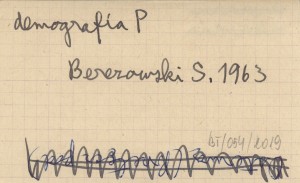 demografia P
Berezowski S. 1963
DT/094/2019